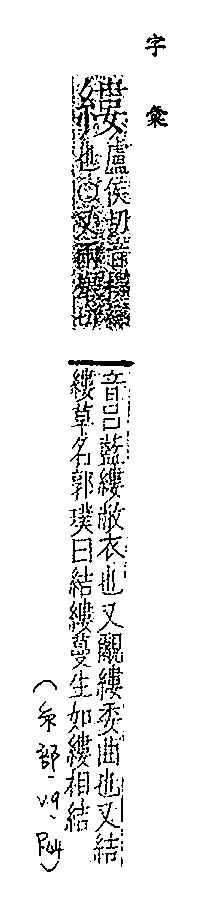 字彙
縷
盧侯切音樓
也○又兩舉切
音呂藍縷敝衣也又覼縷委曲也又結
縷草名郭璞曰結縷蔓生如縷相結
(糸部-v.9、P.44)